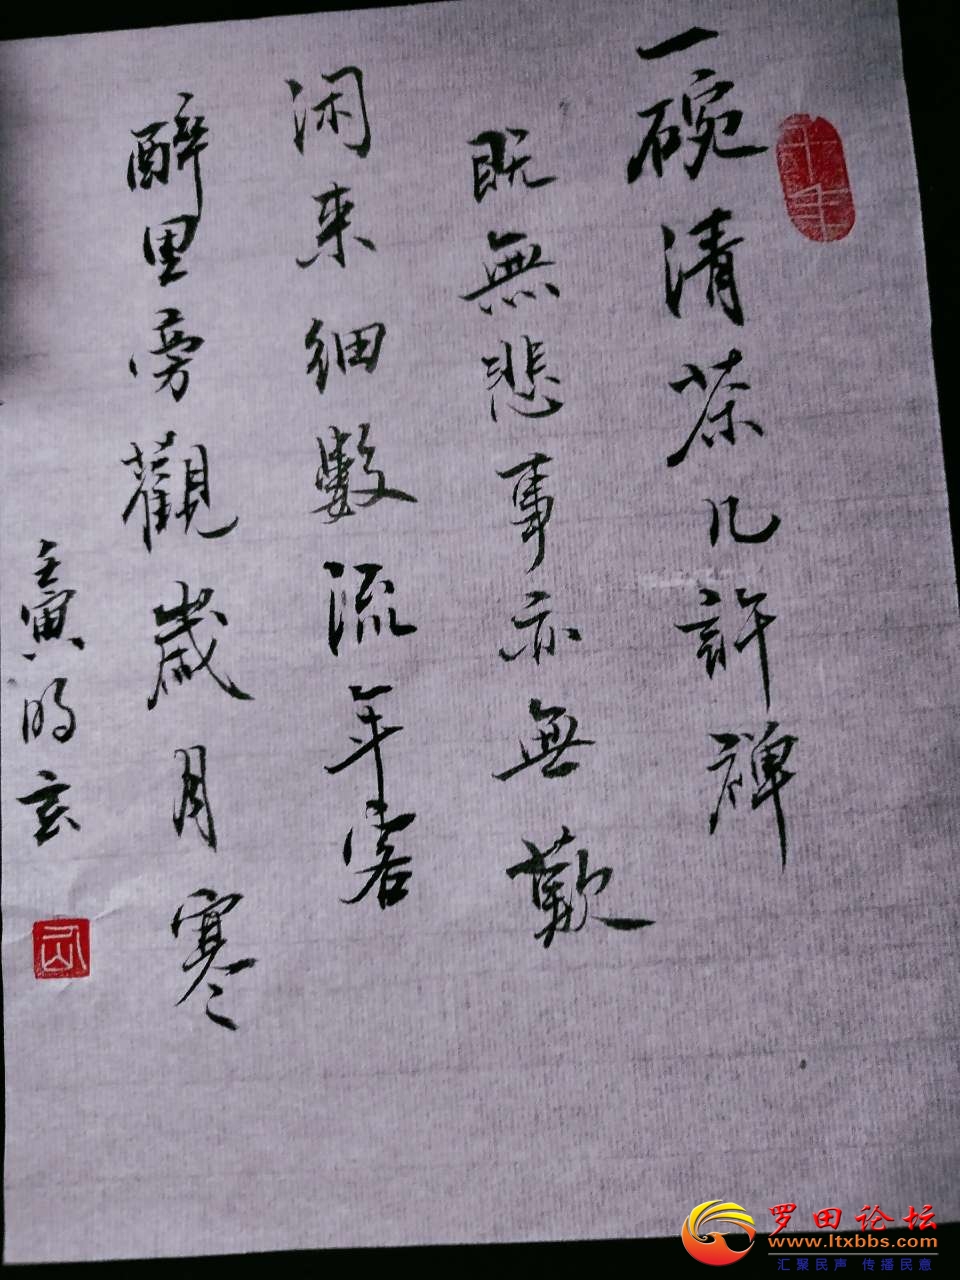 一碗清茶几許禅
既無悲事亦無歡
闲来细數流年客
醉里旁觀歲月寒
壬寅 明玄
千年
罗田论坛
www.ltxbbs.com
汇聚民声 传播民意